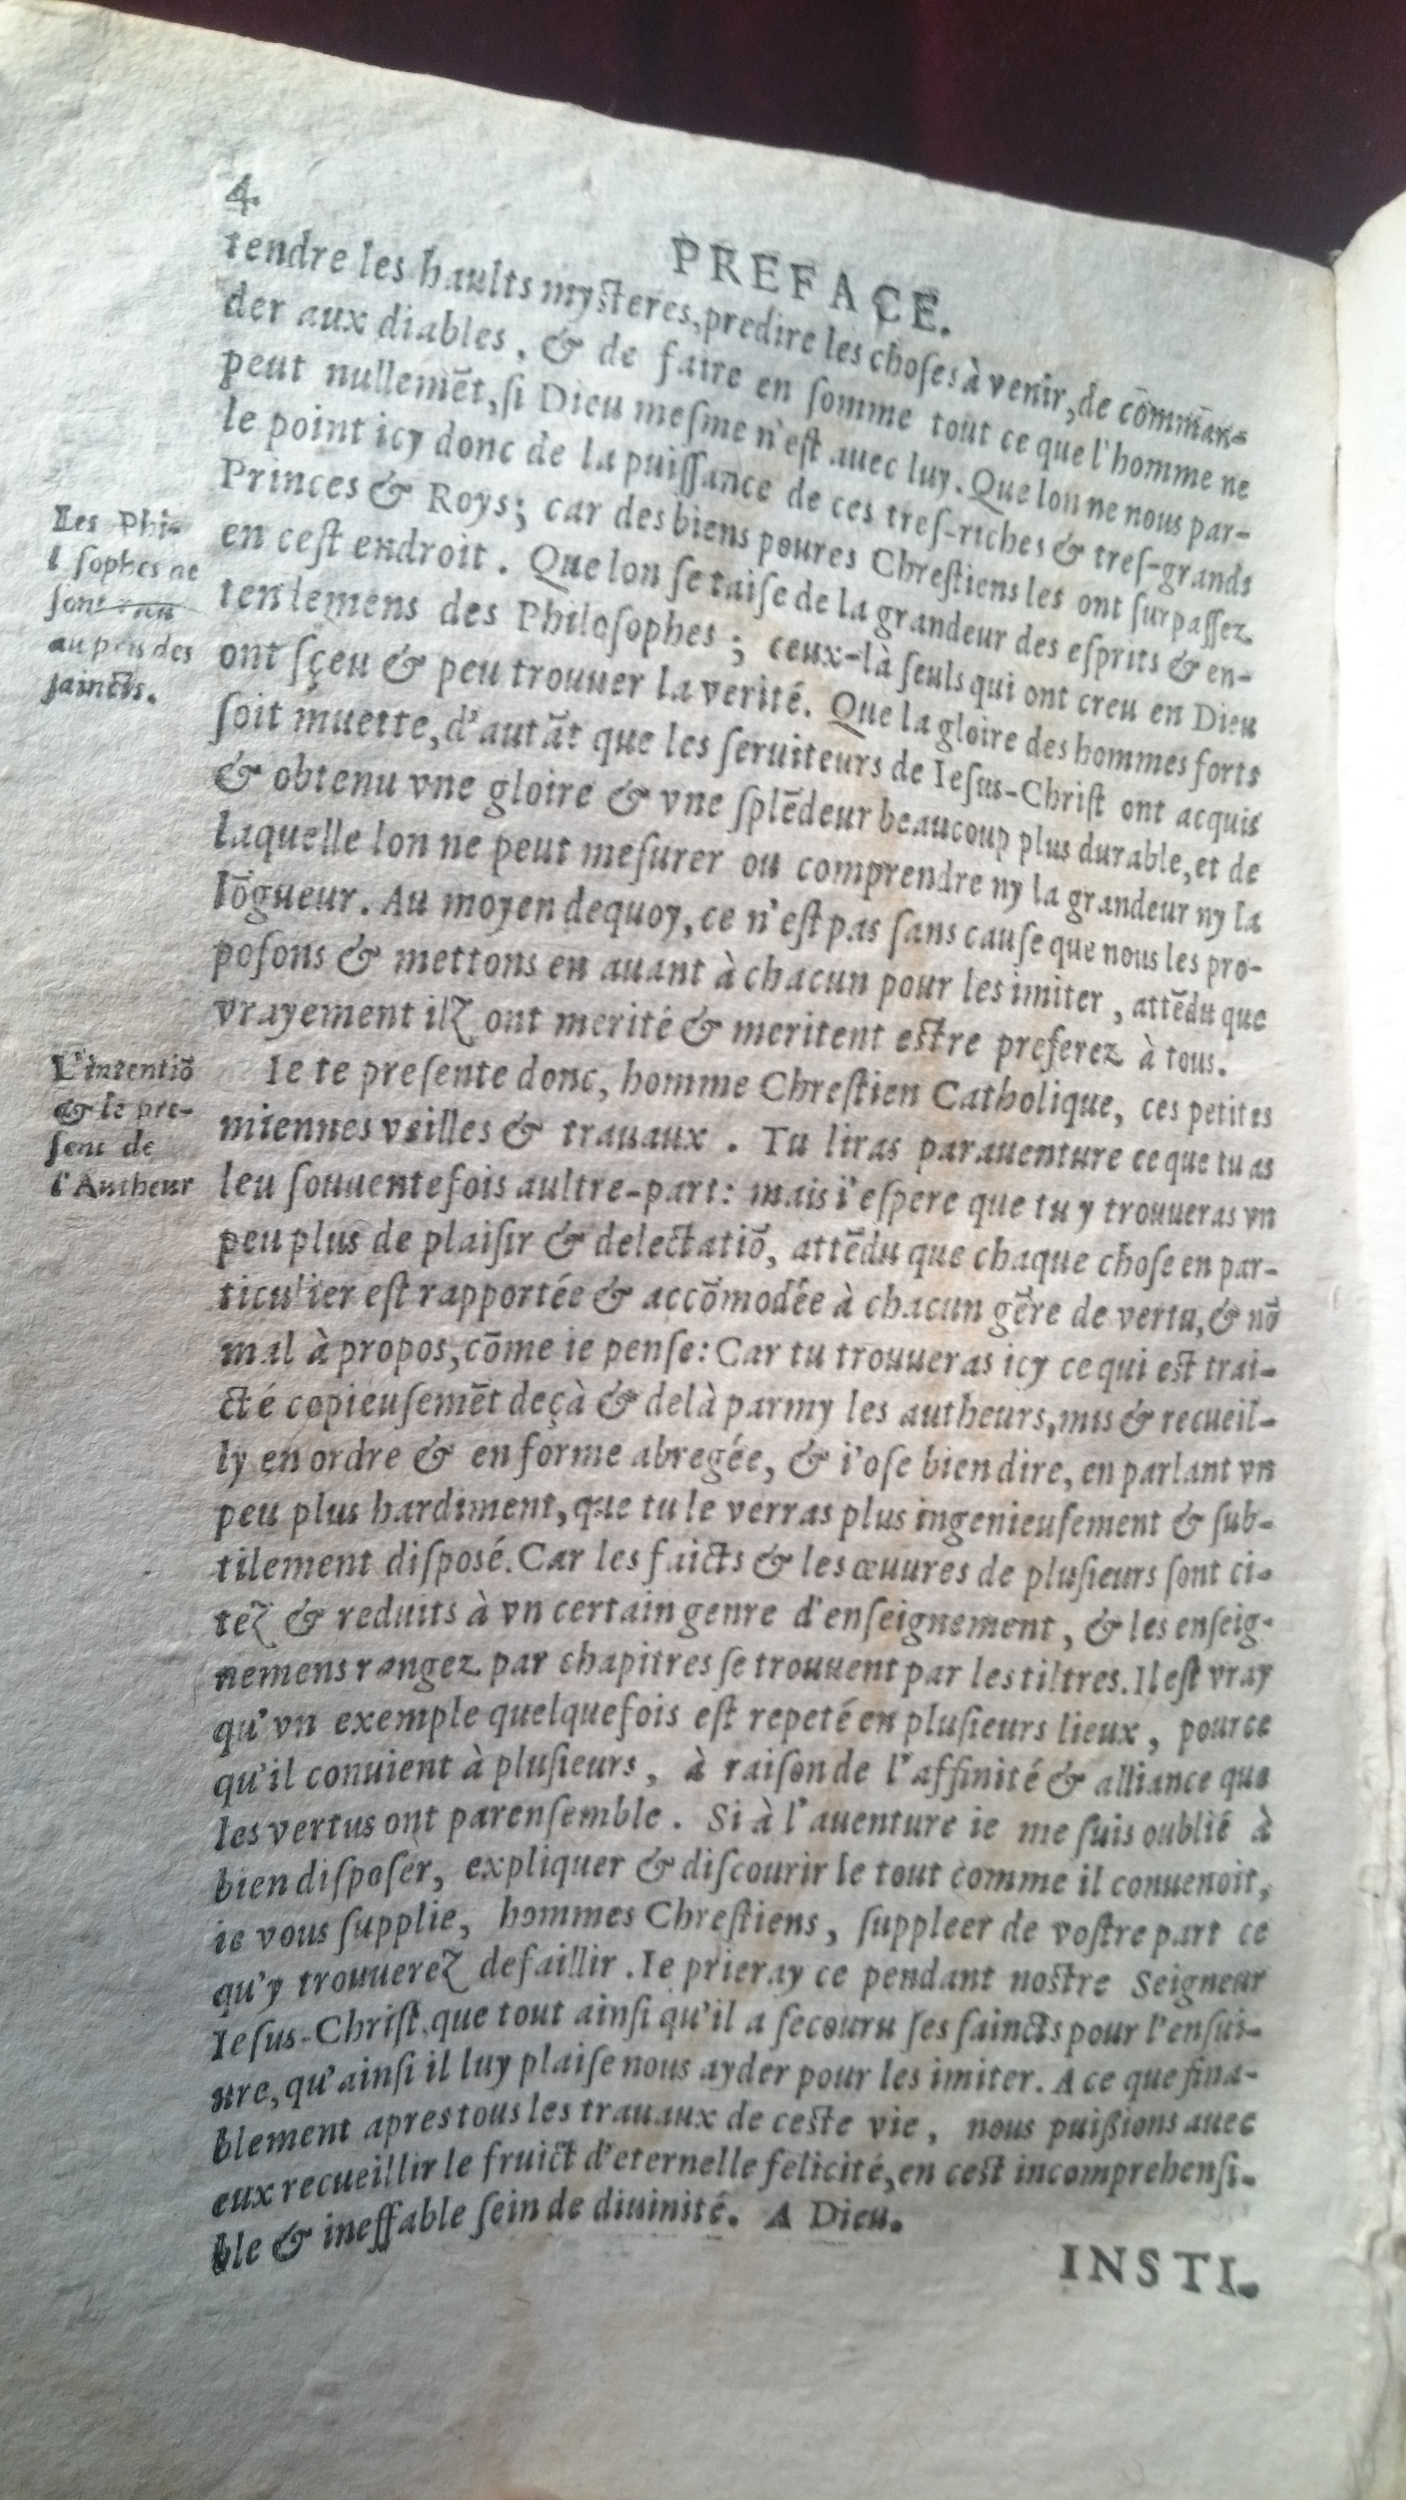 4
PREFACE.
tendre les haults mysteres, predire les choſes à venir, de cõmman-
der aux diables, & de faire en ſomme tout ce que l'homme ne
peut nullemẽt, ſi Dieu meſme n'eſt auec luy. Que lon ne nous par-
le point icy donc de la puiſſance de ces treſ-riches & treſ-grands
Princes & Roys; car des biens poures Chreſtiens les ont ſurpaſſez
en ceſt endroit. Que lon ſe taiſe de la grandeur des eſprits & en-
tendemens des Philoſophes; ceux-là ſeuls qui ont creu en Dieu
ont ſçeu & peu trouuer la verité. Que la gloire des hommes forts
ſoit muette, d'autãt que les ſeruiteurs de Ieſus-Chriſt ont acquis
& obtenu vne gloire & vne ſplẽdeur beaucoup plus durable, et de
laquelle lon ne peut meſurer ou comprendre ny la grandeur ny la
lõgueur. Au moyen dequoy, ce n'eſt pas ſans cauſe que nous les pro-
poſons & mettons en auant à chacun pour les imiter, attẽdu que
vrayement ilz ont merité & meritent eſtre preferez à tous.
Les Phi-
ſophes ne
ſont rien
au pris des
ſaincts.
Ie te preſente donc, homme Chreſtien Catholique, ces petites
miennes veilles & trauaux. Tu liras parauenture ce que tu as
leu ſouuentefois aultre-part: mais i'eſpere que tu y trouueras vn
peu plus de plaiſir & delectatiõ, attẽdu que chaque choſe en par-
ticulier eſt rapportée & accõmodée à chacun gẽre de vertu, & nõ
mal à propos, cõme ie penſe: Car tu trouueras icy ce qui eſt trai-
cté copieuſemẽt deçà & delà parmy les autheurs, mis & recueil-
ly en ordre & en forme abregée, & i'oſe bien dire, en parlant vn
peu plus hardiment, que tu le verras plus ingenieuſement & ſub-
tilement diſposé. Car les faicts & les œuures de pluſieurs ſont ci-
tez & reduits à vn certain genre d'enſeignement, & les enſeig-
nemens rangez par chapitres ſe trouuent par les tiltres. Il eſt vray
qu'vn exemple quelquefois eſt repeté en pluſieurs lieux, pource
qu'il conuient à pluſieurs, à raiſon de l'affinité & alliance que
les vertus ont parenſemble. Si à l'auenture ie me ſuis oublié à
bien diſpoſer, expliquer & diſcourir le tout comme il conuenoit,
ie vous ſupplie, hommes Chreſtiens, ſuppleer de voſtre part ce
qu'y trouuerez defaillir. Ie prieray ce pendant noſtre Seigneur
Ieſus-Chriſt que tout ainſi qu'il a ſecouru ſes ſaincts pour l'enſui-
ure, qu'ainſi il luy plaiſe nous ayder pour les imiter. A ce que fina-
blement apres tous les trauaux de ceſte vie, nous puißions auec
eux recueillir le fruict d'eternelle felicité, en ceſt incomprehenſi-
ble & ineffable ſein de diuinité. A Dieu.
L'intentiõ
& le pre-
ſent de
l'Autheur
INSTI-